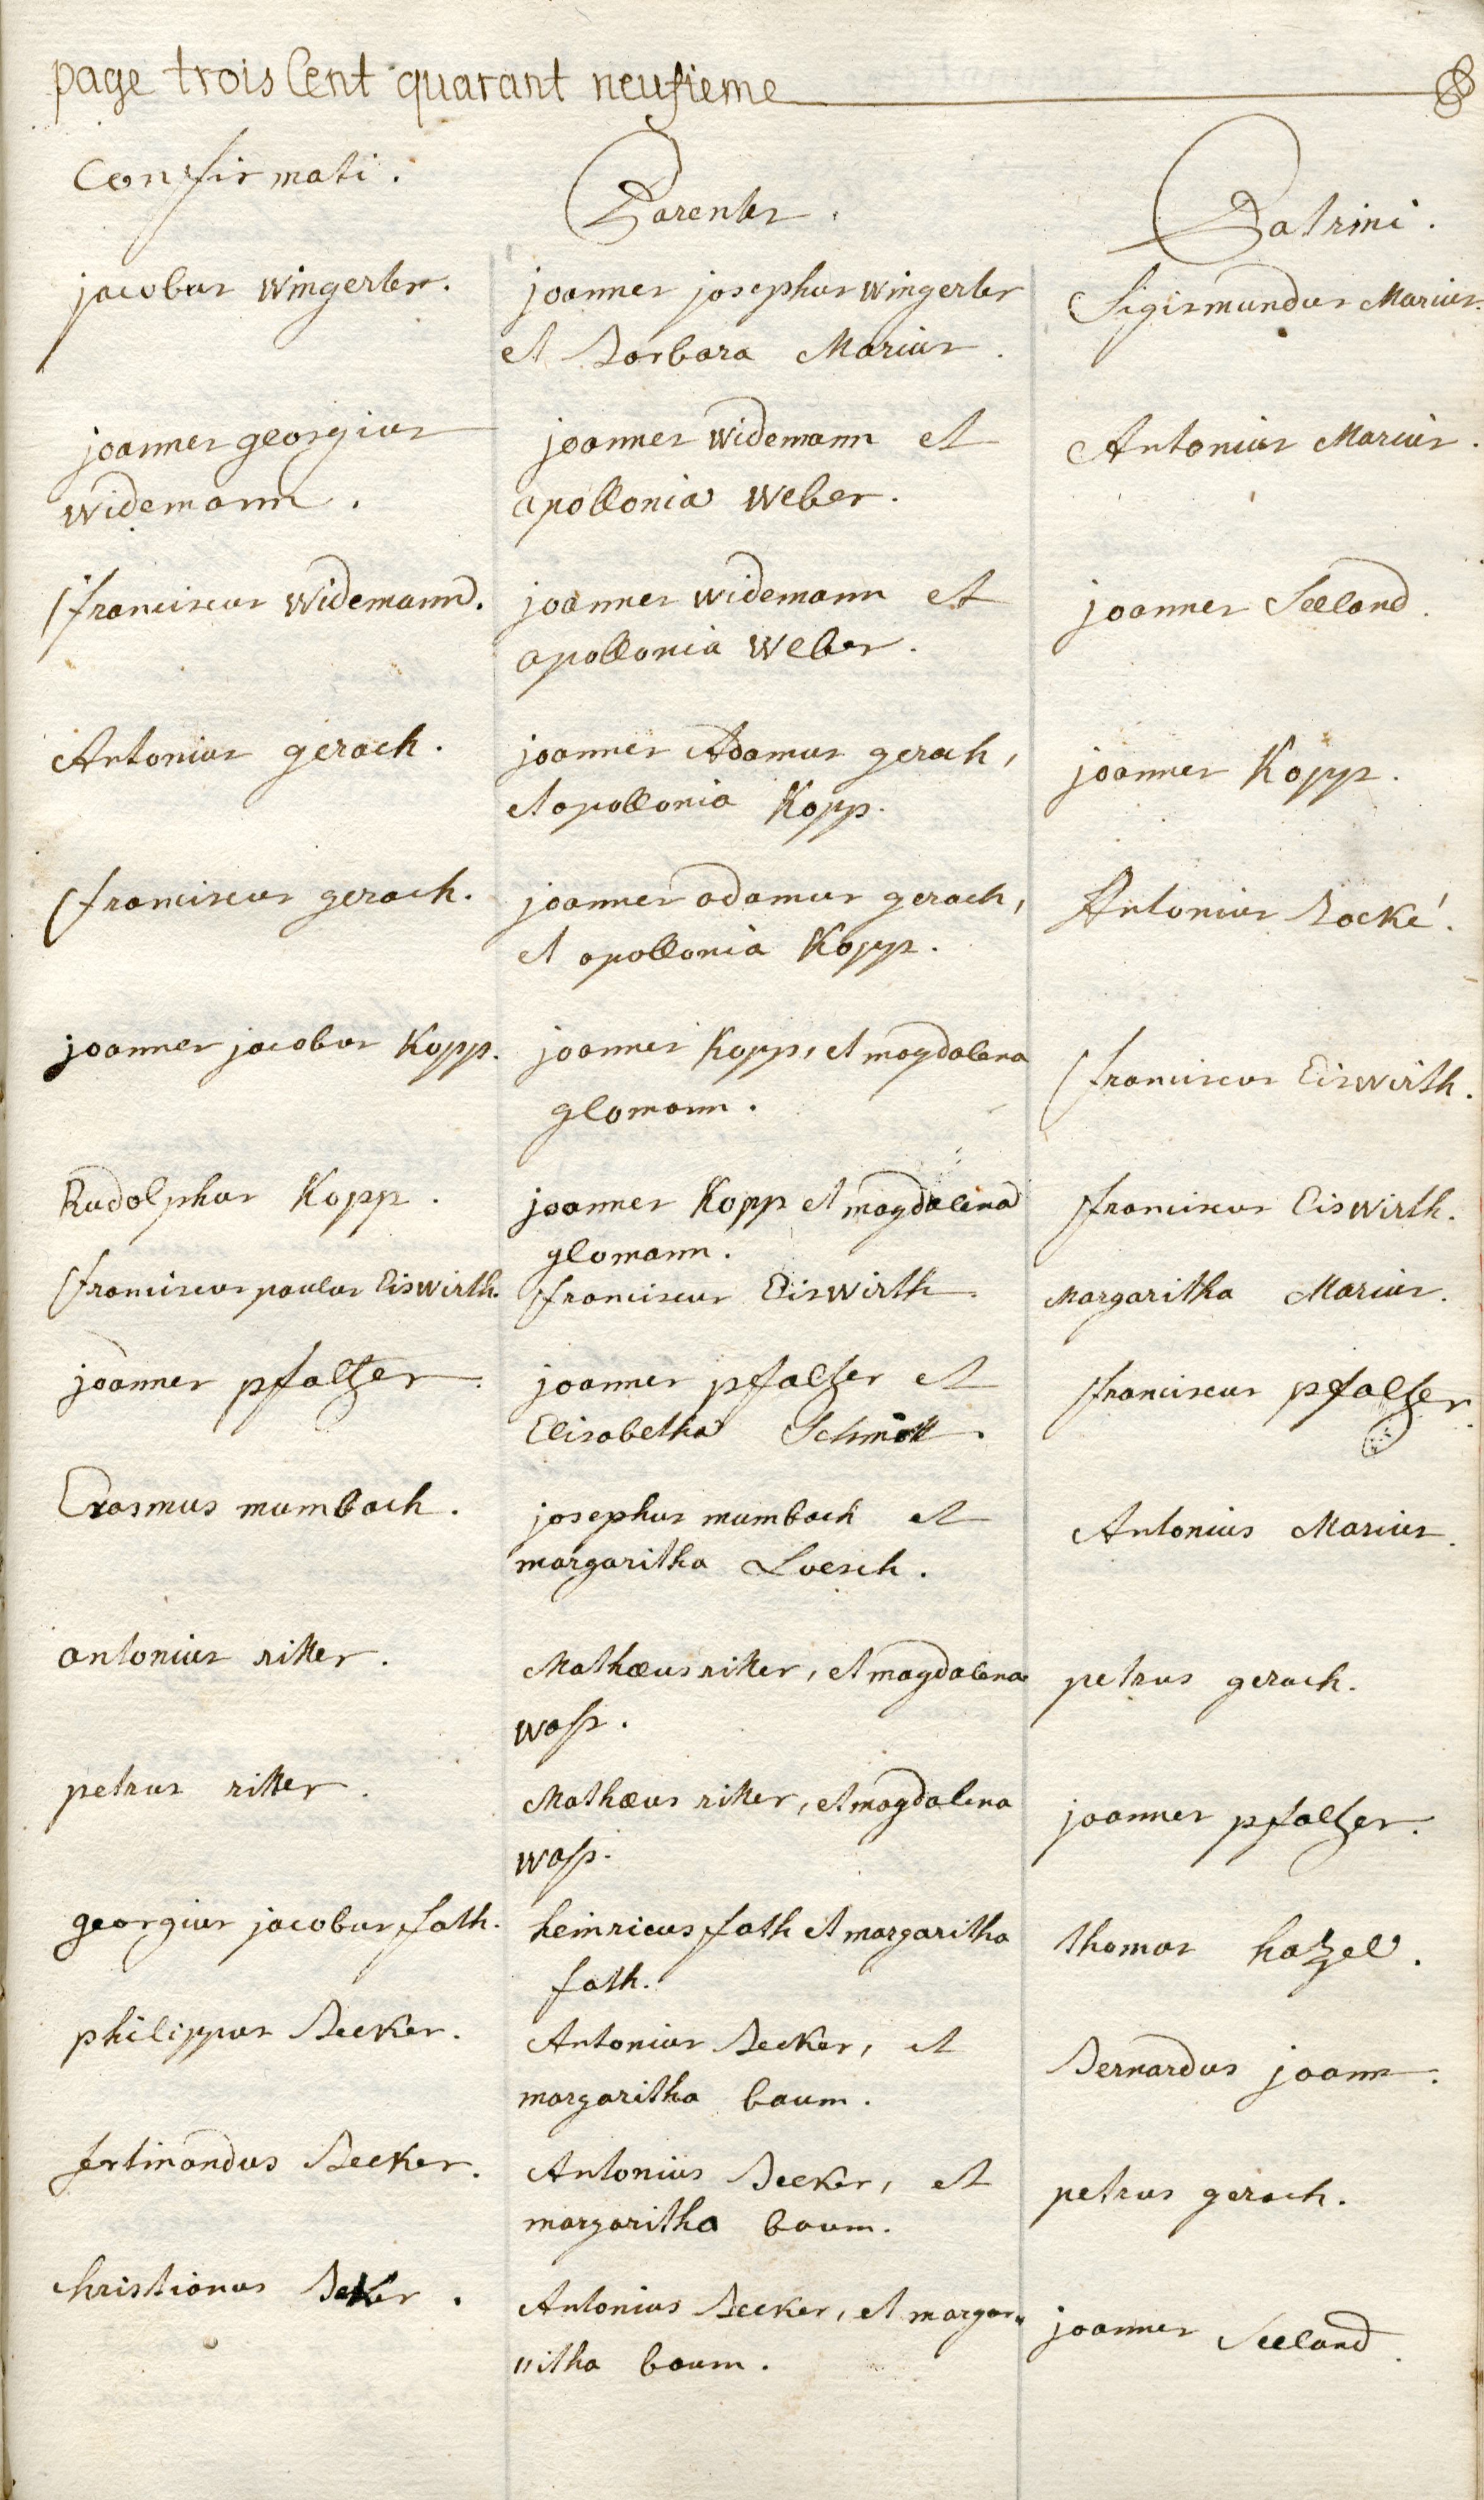 page trois Cent quarant neufieme
Confirmati. Parentes. Patrini.
jacobus Wingerter. joannes josephus Wingerter Sigismundus Marius.
et Barbara Marius.
joannes georgius joannes Widemann et Antonius Marius.
Widemann. apollonia Weber.
franciscus Widemann. joannes Widemann et joannes Seeland.
apollonia Weber.
Antonius gerach. joannes Adamus gerach, joannes Kopp.
et apollonia Kopp.
franciscus gerach. joannes adamus gerach, Antonius Backé.
et apollonia Kopp.
joannes jacobus Kopp. joannes Kopp, et magdalena franciscus Eiswirth.
glomann.
Rudolphus Kopp. joannes Kopp et magdalena franciscus Eiswirth.
glomann.
franciscus paulus Eiswirth. franciscus Eiswirth. Margaritha Marius.
joannes pfaltzer. joannes pfaltzer et franciscus pfaltzer.
Elisabetha Schmitt.
Erasmus mumbach. josephus mumbach et Antonius Marius.
margaritha Loesch.
antonius ritter. Mathæus ritter, et magdalena petrus gerach.
wass.
petrus ritter. Mathæus ritter, et magdalena joannes pfaltzer.
wass.
georgius jacobus fath. heinricus fath et margaritha thomas hatzel.
fath.
philippus Becker. Antonius Becker, et Bernardus joann.
margaritha baum.
fertinandus Becker. Antonius Becker, et petrus gerach.
margaritha baum.
christianus Beker. Antonius Becker, et margar= joannes Seeland.
itha baum.